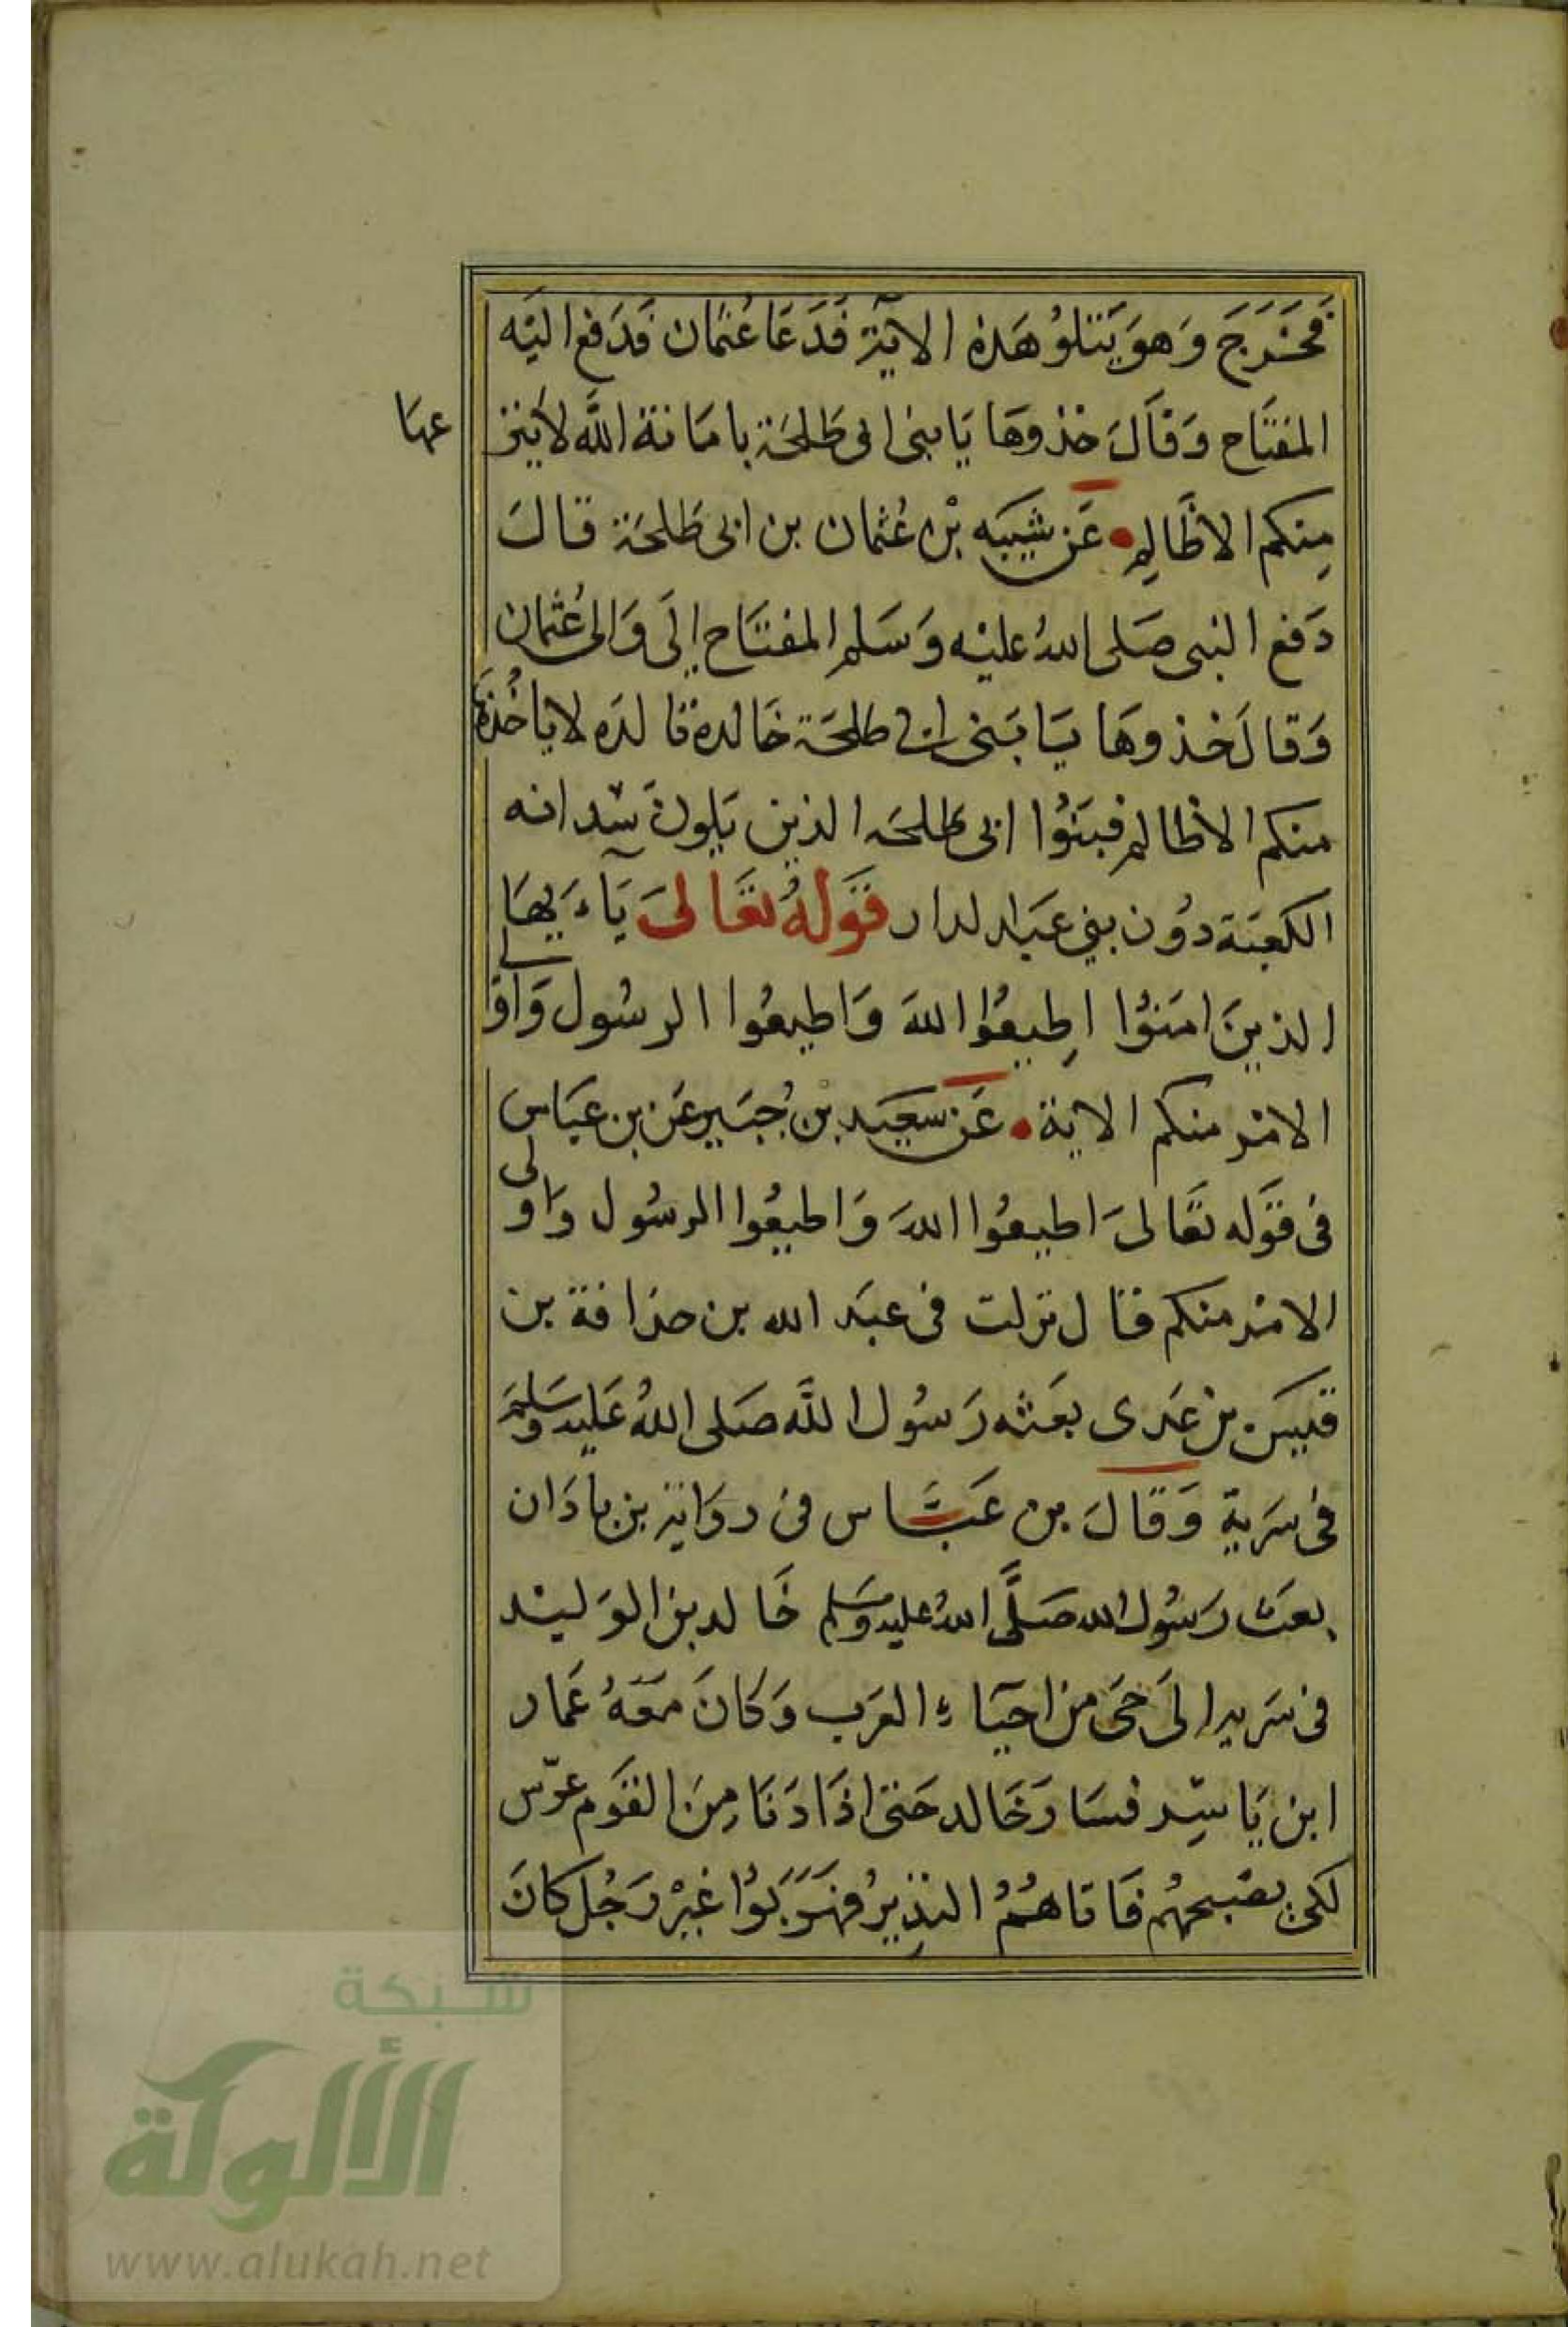 فَخَرَجَ وَهوَ يَتْلوُ هَذه الايَة فَدَعَا عُثمان فَدَفع اليَه
المفتَاح وَقاَلَ خذوهَا يَا بنى ابى طَلحَة بامَانة اللَّه لا ينز
عها
مِنكم الا ظَالم عَن شيبَه بْن عُثمان بن ابى طَلحَة قال
دَفع النبى صَلى اللهُ عليْه وَسَلم المفتَاح إلَى وَالى عُثمان
وَقالَ خذوهَا يَا بَنى ابى طلحَة خَالدة تالدَه لا ياخُذهَا
منكم الا ظالم فبنَوُا ابى طلحَه الذين يَلونَ سدانه
الكعبَة دوُن بني عَبد الدار قَولهُ تعَالىَ يَاءَيهَا
الذينَ امَنوُا اطِيعُوا اللهَ وَاطيعُوا الرسُول وَاولى
الامْر منكم الاية عَن سَعيَد بْن جُبَير عَن بن عَبَاس
فى قَوله تعَالىَ اطيعُوا اللهَ وَاطيعُوا الرسُول وَاولى
الامْر منكم قال نزلت فى عبَد الله بن حذافة بن
قَيسَ بن عَدى بعَثه رَسُول اللَّه صَلى اللهُ عَليه وَسَلمَ
فى سَرية وَقالَ بن عَبَّاس فى روَاية بن باذَان
بعَث رَسُول الله صَلَّى اللهُ عليه وسَلم خَالد بن الوَليْد
فى سَريه الَى حَى من احيَاءِ العَرب وَكانَ مَعَهُ عَمار
ابن يَاسِر فسَارَ خَالد حَتى اذَا دَنَا مِنَ القَوم عرّس
لكى يصَبحهُم فَاتاهُمُ النذِيرُ فهَرَبَوُا غَيْر رَجُل كانَ
شبكة
الألوكة
www.alukah.net